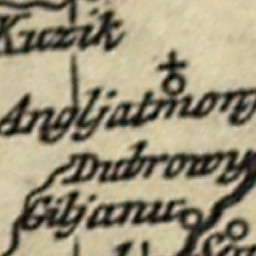 Kuzik
Angljatmony
Dubrowy
Gibjanu